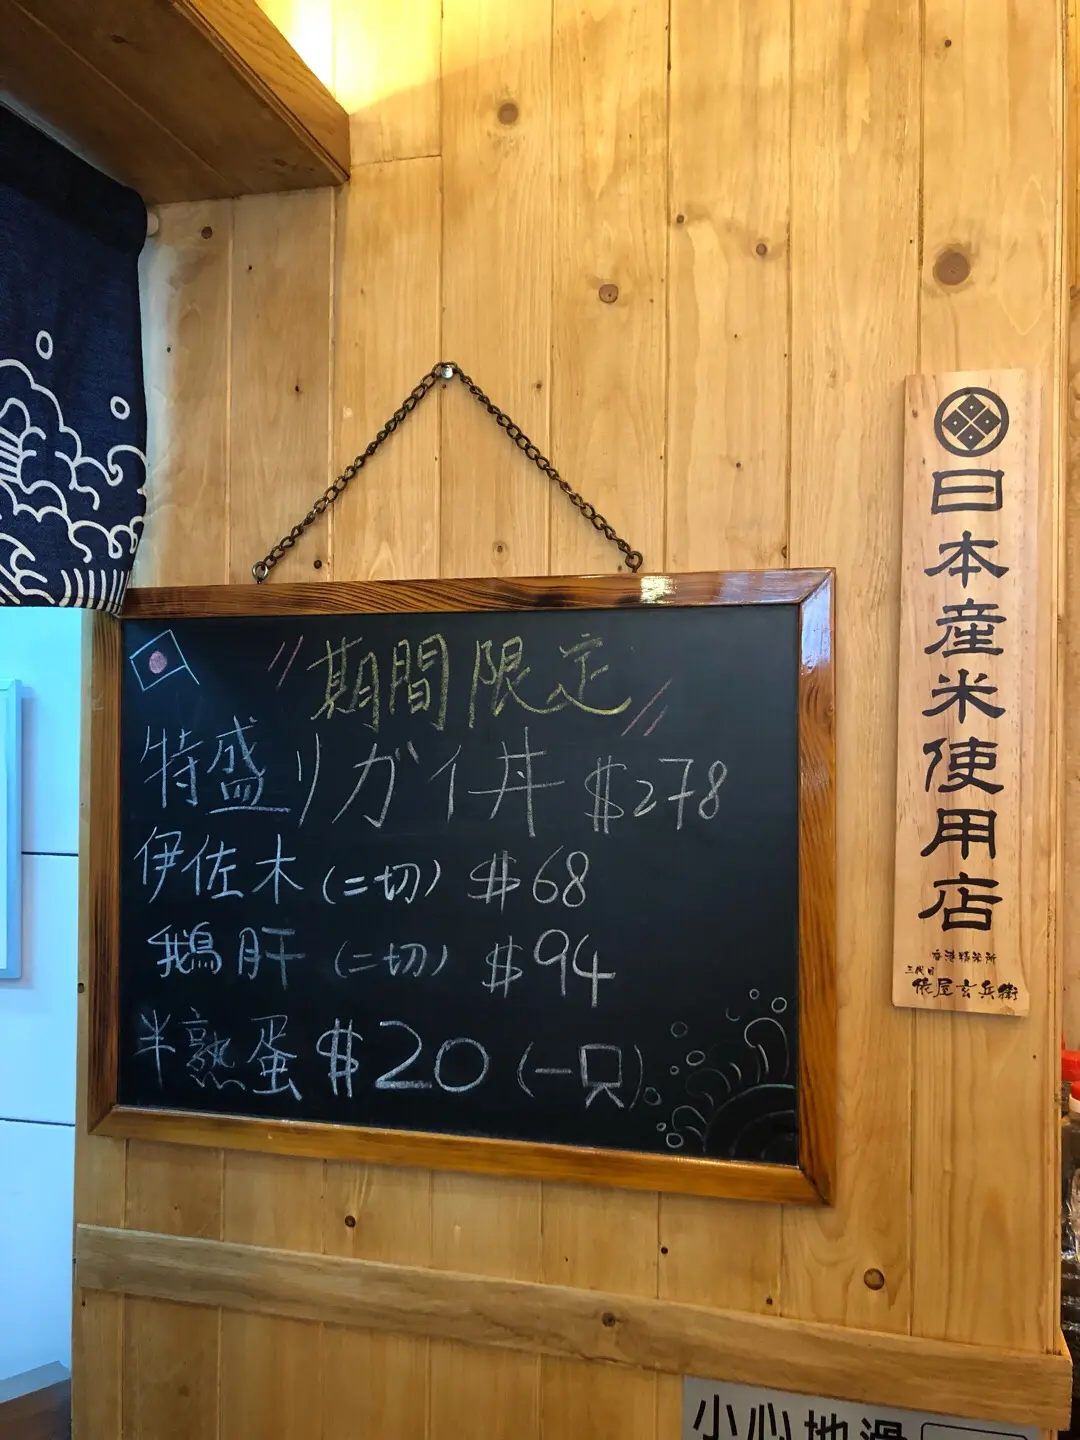 期間限定
特盛リガイ丼 $278
伊佐木(二切) $68
鵝肝(二切) $94
半熟蛋 $20 (一只)
日本産米使用店
香港精米所
三代目
俵屋玄兵衛
小心地滑